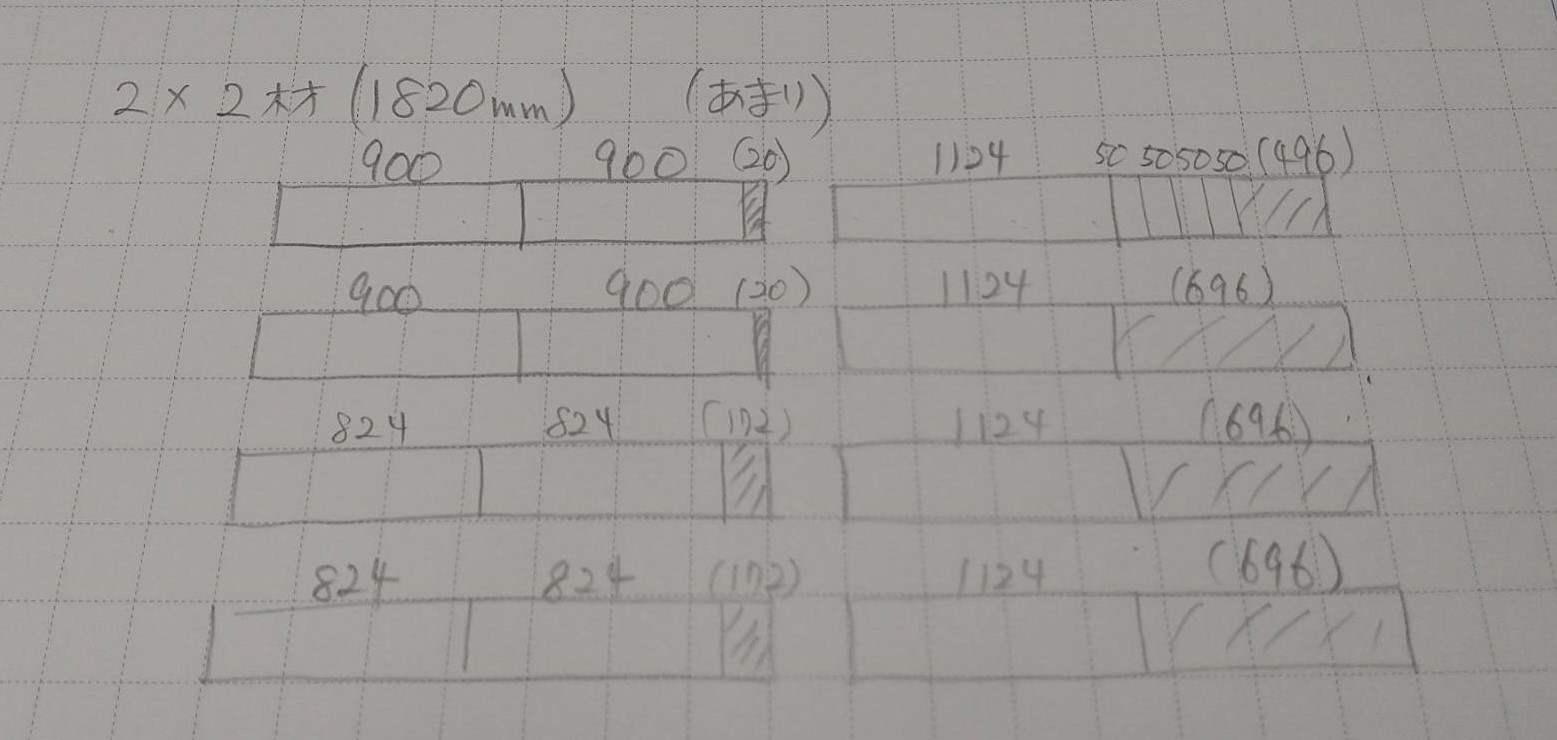 2×2材(1820mm) (あまり)
900 900 (20) 1124 50 50 50 50 (496)
900 900 (20) 1124 (696)
824 824 (172) 1124 (696)
824 824 (172) 1124 (696)